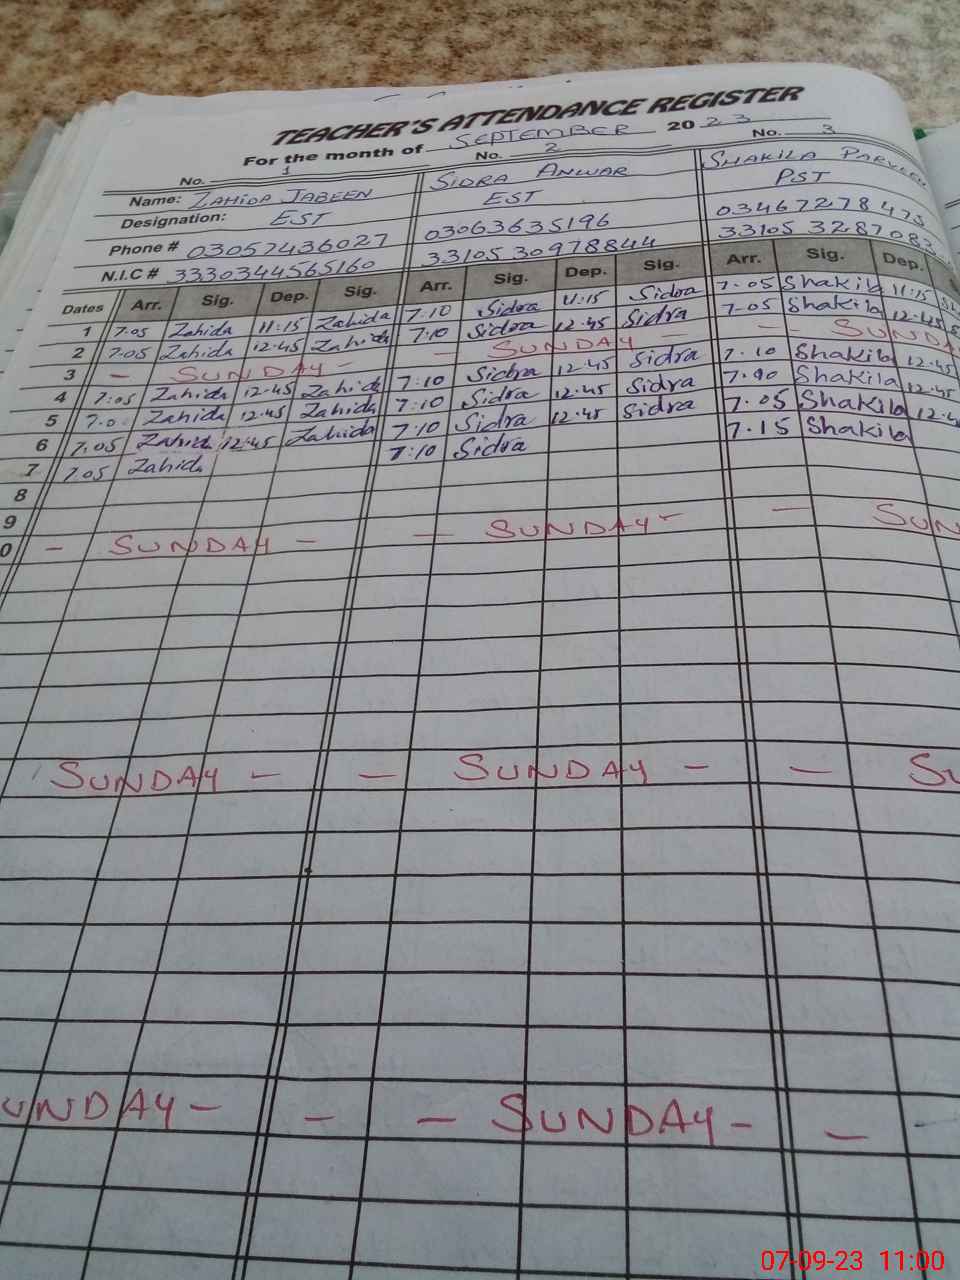 TEACHER'S ATTENDANCE REGISTER
For the month of SEPTEMBER 2023
No. 1 No. 2 No. 3
Name: ZAHIDA JABEEN SIDRA ANWAR SHAKILA PARVEEN
Designation: EST EST PST
Phone # 03057436027 03063635196 03467278475
N.I.C # 3330344565160 33105 30978844 33105 3287083
Dates Arr. Sig. Dep. Sig. Arr. Sig. Dep. Sig. Arr. Sig. Dep.
1 7.05 Zahida 11:15 Zahida 7:10 Sidra 11:15 Sidra 7.05 Shakila 11:15
2 7.05 Zahida 12.45 Zahida 7:10 Sidra 12.45 Sidra 7.05 Shakila 12.45
3 - SUNDAY - - SUNDAY - - SUNDA
4 7:05 Zahida 12.45 Zahida 7:10 Sidra 12.45 Sidra 7.10 Shakila 12.45
5 7.0 Zahida 12.45 Zahida 7:10 Sidra 12.45 Sidra Shakila 12.45
6 7.05 Zahida 12.45 Zahida 7:10 Sidra 12.45 Sidra 7.05 Shakila 12.4
7 7.05 Zahida 7:10 Sidra 7.15 Shakila
8
9
0 - SUNDAY - - SUNDAY - - SUN
SUNDAY - - SUNDAY - - SU
UNDAY - - - SUNDAY - -
07-09-23 11:00